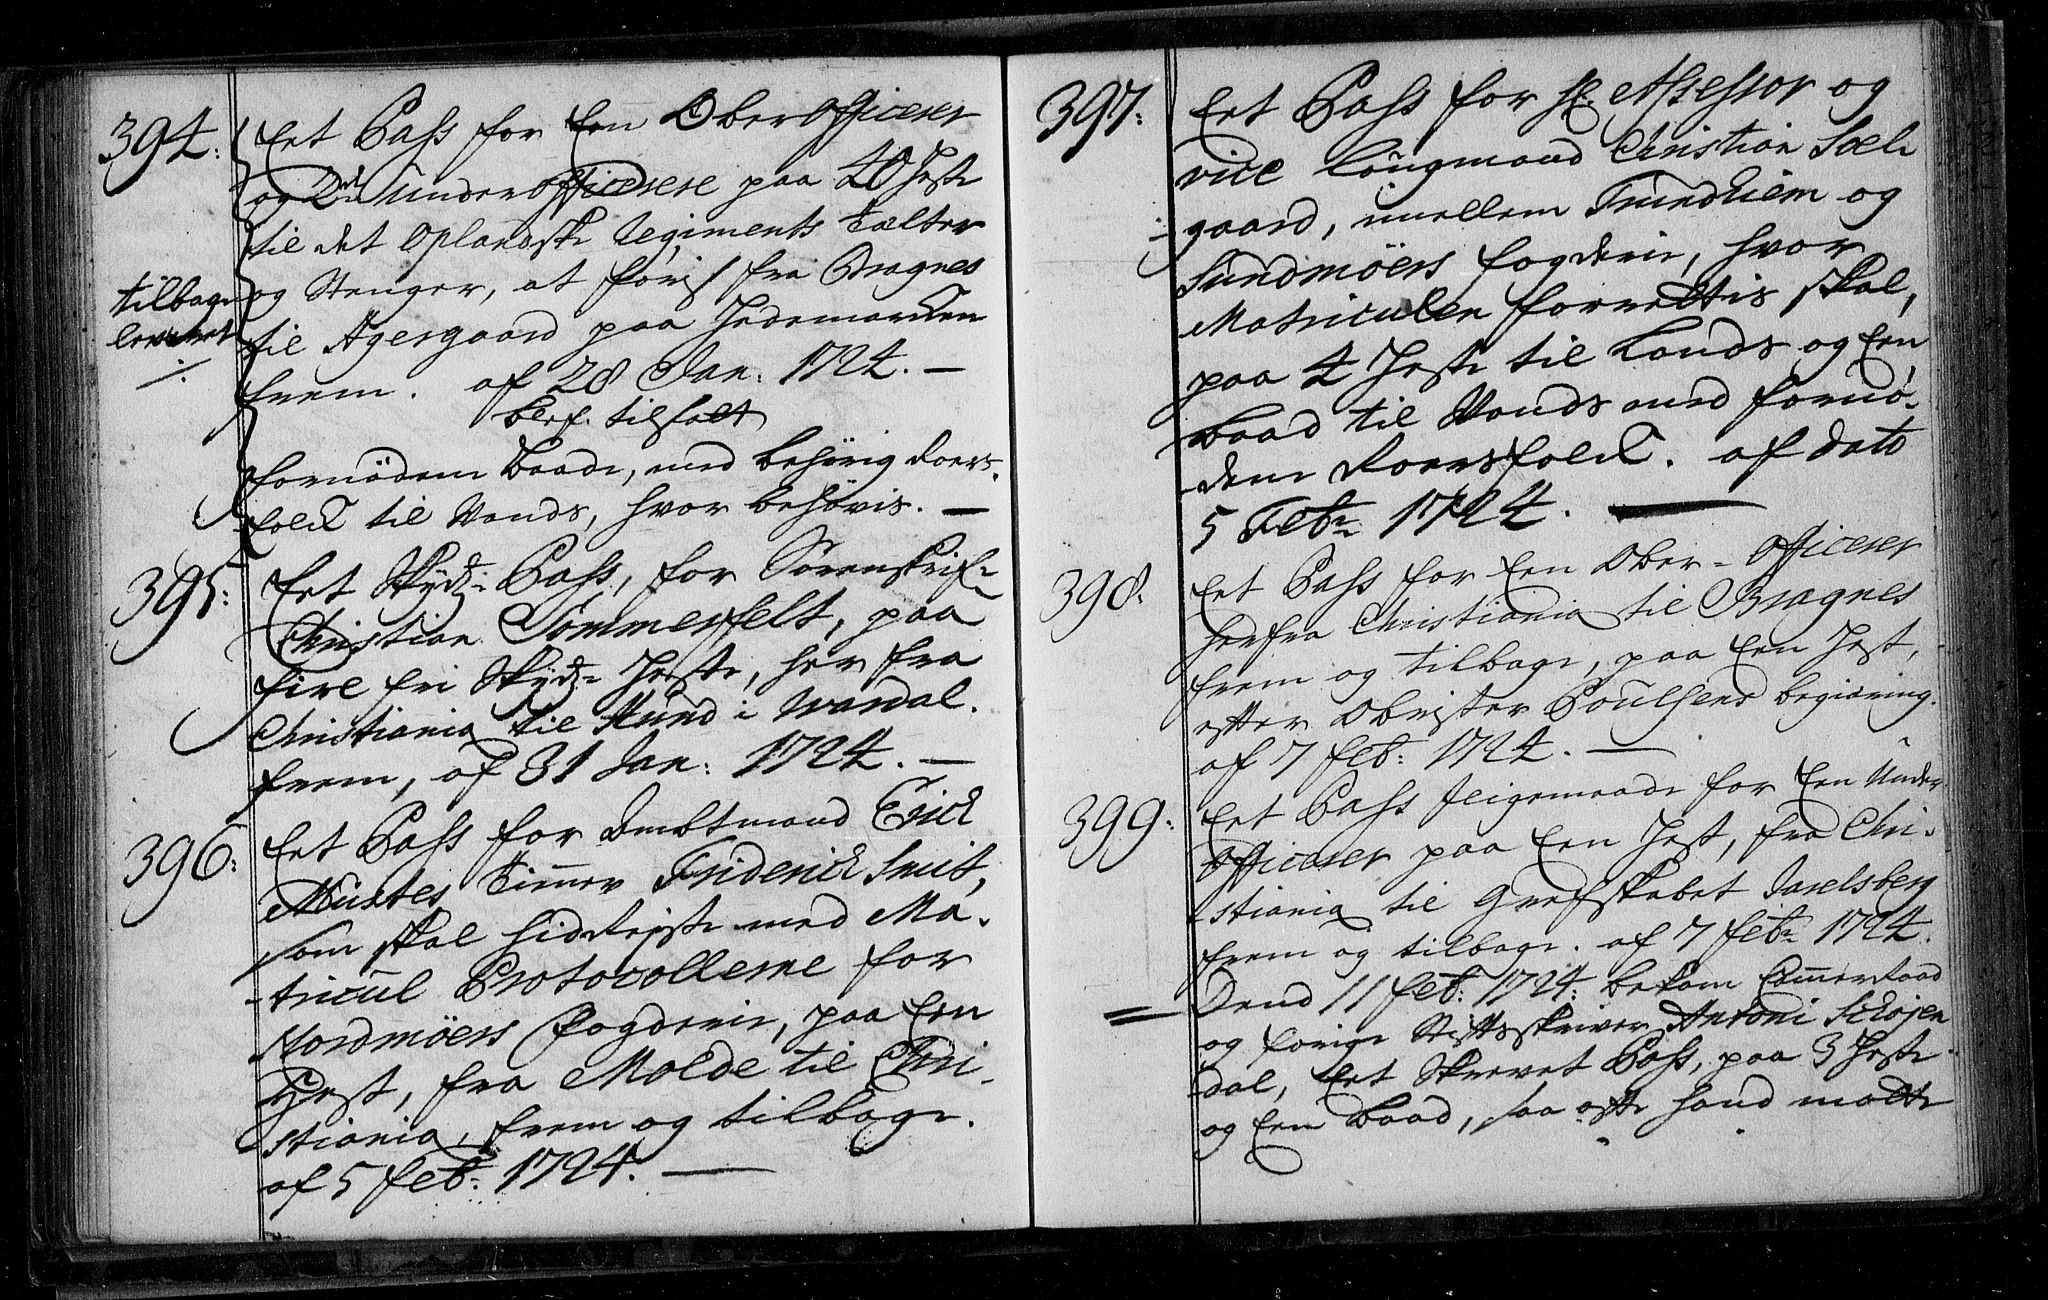 394:
Eet Pass for Een Ober Officerer
og 2de Underofficerere paa 40 Heste
til det Oplandske Regiments Tælter
og Stenger, at føris fra Bragnes
til Agergaard paa Hedemarcken
frem. af 28 Jan: 1724. —
blef tilsatt
fornøden Baade, med behørig Roers-
folck til Vands, hvor behøvis. —
tilbage
leveret
395:
Eet Skydz- Pass, for Sorenskrif-
Christian Sommerfelt, paa
fire fri Skydz- Heste, her fra
Christiania til Hund i Wardal.
frem, af 31 Jan: 1724. —
396:
Eet Pass for Ambtmand Erick
Mustes Tiener Friderich Smit,
som skal hidReise med Ma-
tricul Protocollerne for
Nordmøers Fogderie, paa Een
Hest, fra Molde til Chri-
stiania, frem og tilbage.
af 5 Feb: 1724. —
397:
Eet Pass for Hr. Assessor og
vice Laugmand Christian Sæl-
gaard, imellem Trundhiem og
Sundmøers fogderie, hvor
Matriculen forrettis skal,
paa 4 Heste til Lands og Een
Baad til Vands med fornø-
den Roersfolck. af dato
5 Febr. 1724. —
398:
Eet Pass for Een Ober- Officerer
herfra Christiania til Bragnes
frem og tilbage, paa Een Hest,
efter Obrister Poulsens begiering.
af 7 feb: 1724. —
399:
Eet Pass lligemaade for Een Under
Officerer paa Een Hest, fra Chri-
stiania til Grefskabet Jarelsberg
frem og tilbage. af 7 febr 1724.
Dend 11 feb: 1724: bekom CammerRaad
og forige Stiftsskriver Antoni Schøjen
dal, Eet Skrevet Pass, paa 3 Heste
og Een Baad, saa ofte hand motte